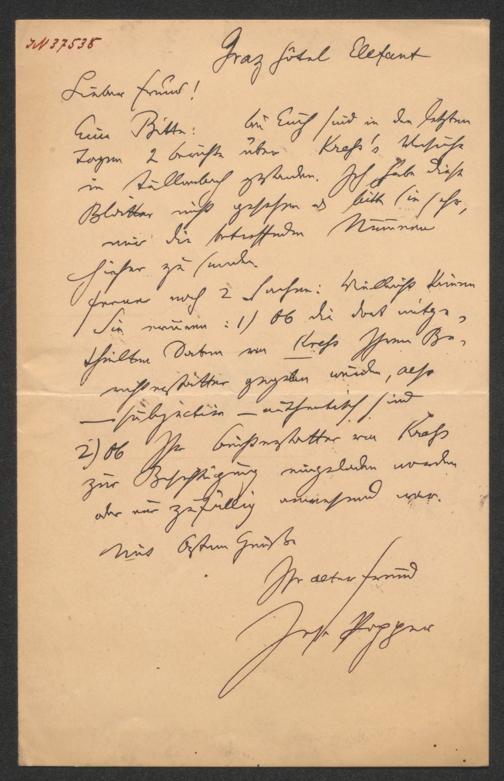 JN 37535
Graz Hôtel Elefant
Lieber Freund!
Eine Bitte: bei Euch sind in den letzten
Tagen 2 Berichte über Kreß's Versuche
in Tullnerbach gestanden. Ich habe diese
Blätter nicht gesehen u bitte Sie sehr,
mir die betreffenden Nummern
hieher zu senden.
Ferner noch 2 Sachen: Vielleicht können
Sie eruiren: 1) Ob die dort mitge-
theilten Daten von Kreß Ihrem Be-
richterstatter gegeben wurden, also
— subjectiv — authentisch sind
2) Ob Ihr Berichterstatter von Kreß
zur Besichtigung eingeladen worden
oder nur zufällig anwesend war.
Mit besten Grüßen
Ihr alter Freund
Jos. Popper